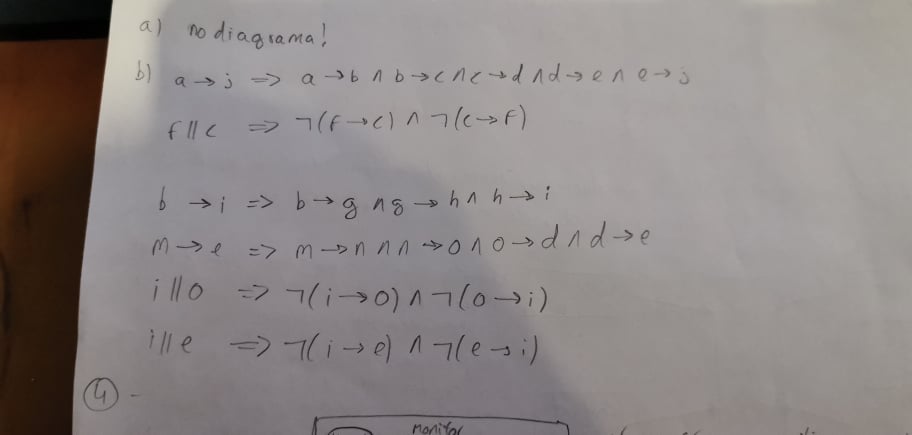 a) no diagrama!
b) a → j => a → b ∧ b → c ∧ c → d ∧ d → e ∧ e → j
f || c => ¬(f → c) ∧ ¬(c → f)
b → i => b → g ∧ g → h ∧ h → i
m → e => m → n ∧ n → o ∧ o → d ∧ d → e
i || o => ¬(i → o) ∧ ¬(o → i)
i || e => ¬(i → e) ∧ ¬(e → i)
4 -
Monitor